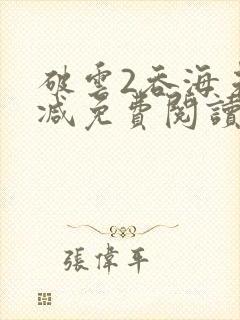 破雲2吞海
減免費閱讀
張偉平